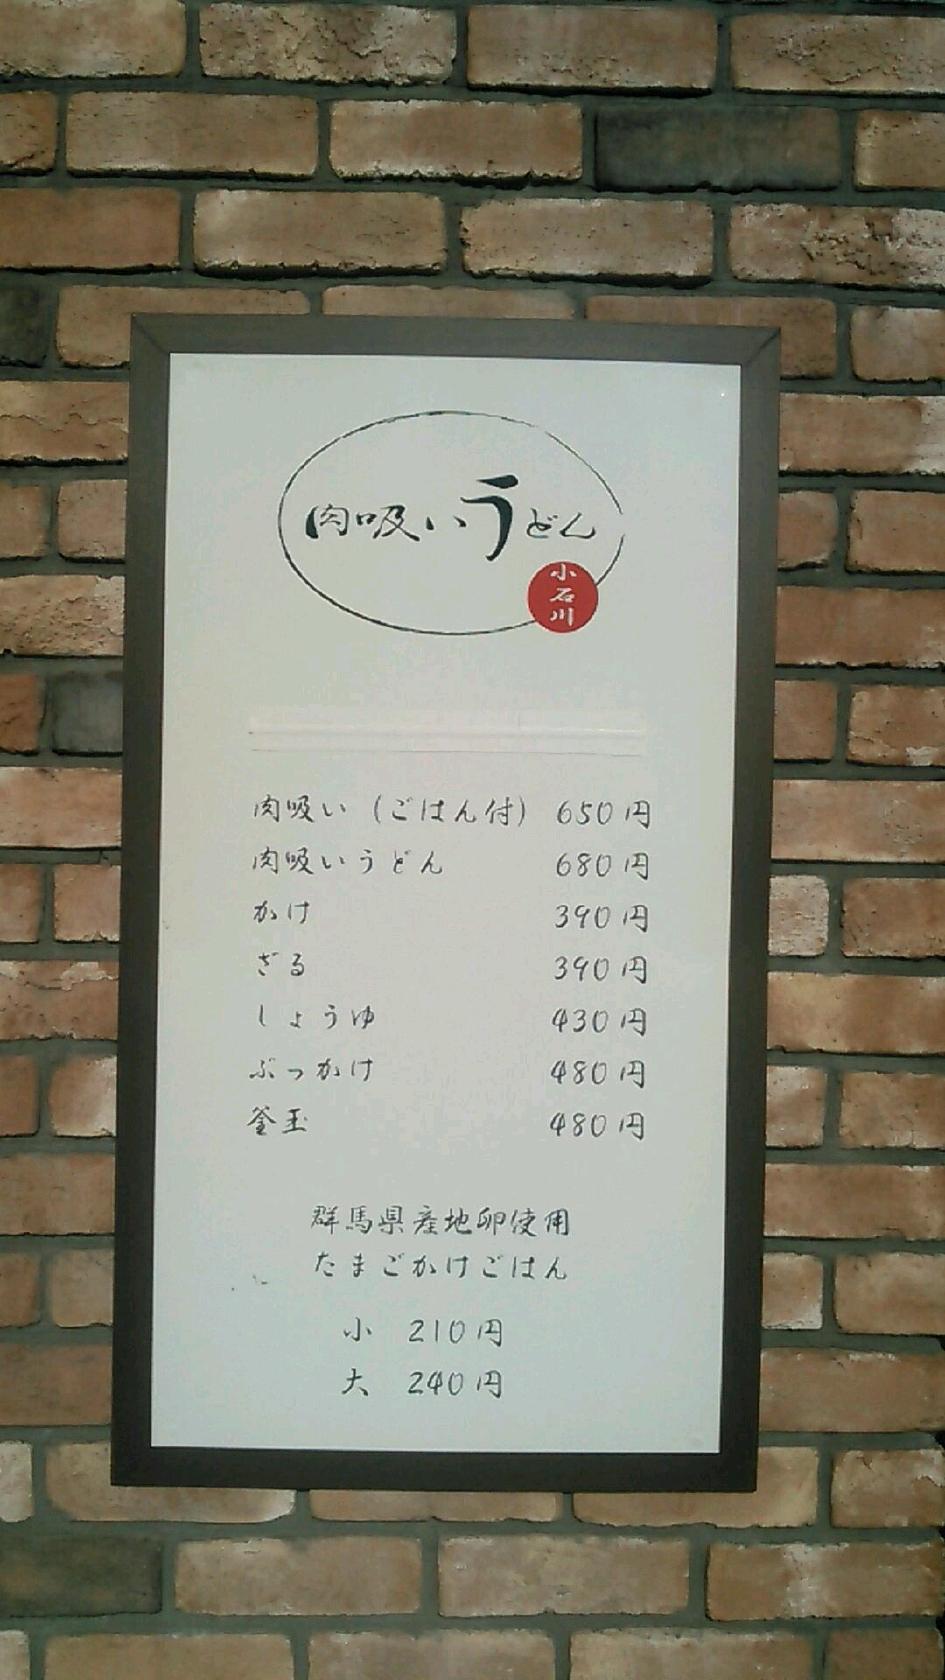 肉吸いうどん
小石川
肉吸い（ごはん付） 650円
肉吸いうどん 680円
かけ 390円
ざる 390円
しょうゆ 430円
ぶっかけ 480円
釜玉 480円
群馬県産地卵使用
たまごかけごはん
小 210円
大 240円